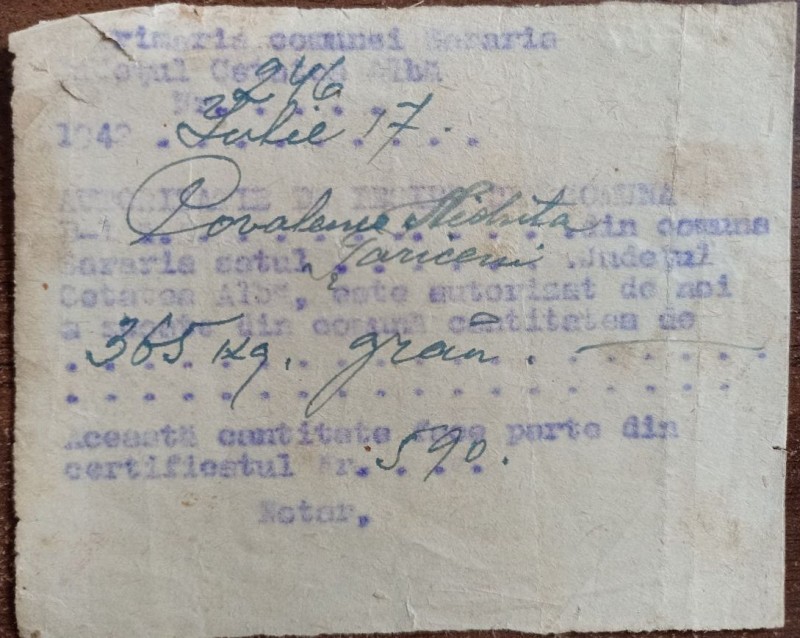 Primaria comunei Sararia
Județul Cetatea Albă
Nr. 246
1942 Iulie 17
AUTORIZATIE DE COMUNA
D-l Covalenco Nichita din comuna
Sararia satul Județul
Cetatea Albă, este autorizat de noi
a scoate din comună cantitatea de
365 kg. grâu.
Această cantitate face parte din
certificatul Nr. 590.
Notar,